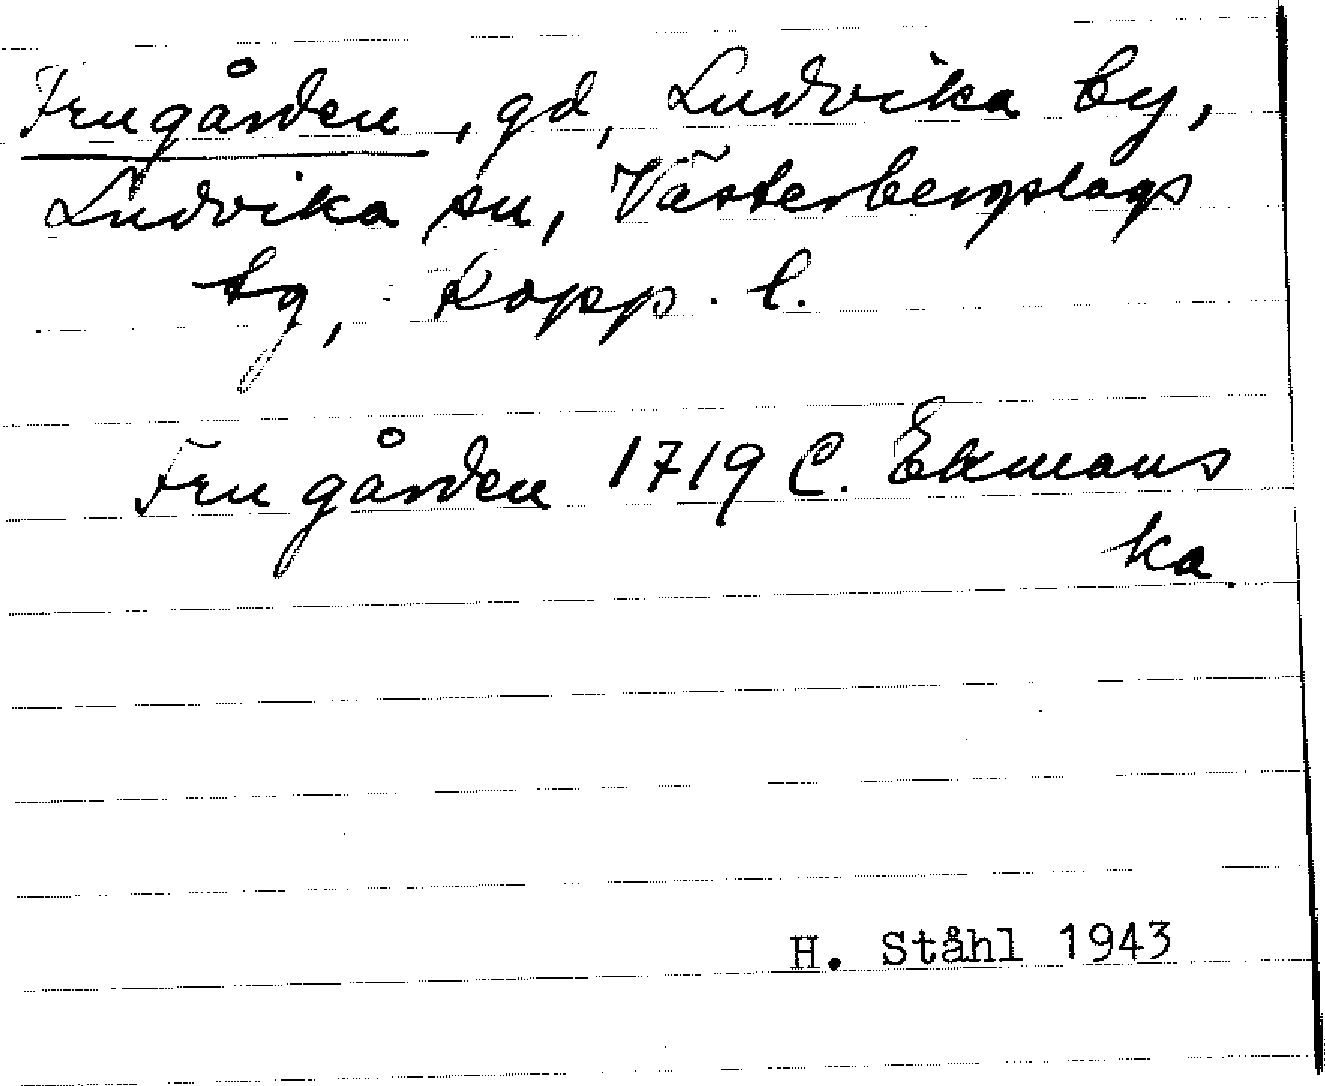 Frugården, gd, Ludvika by,
Ludvika sn, Västerbergslags
tg, Kopp. l.
Fru gården 1719 C. Ekmans
ka.
H. Ståhl 1943